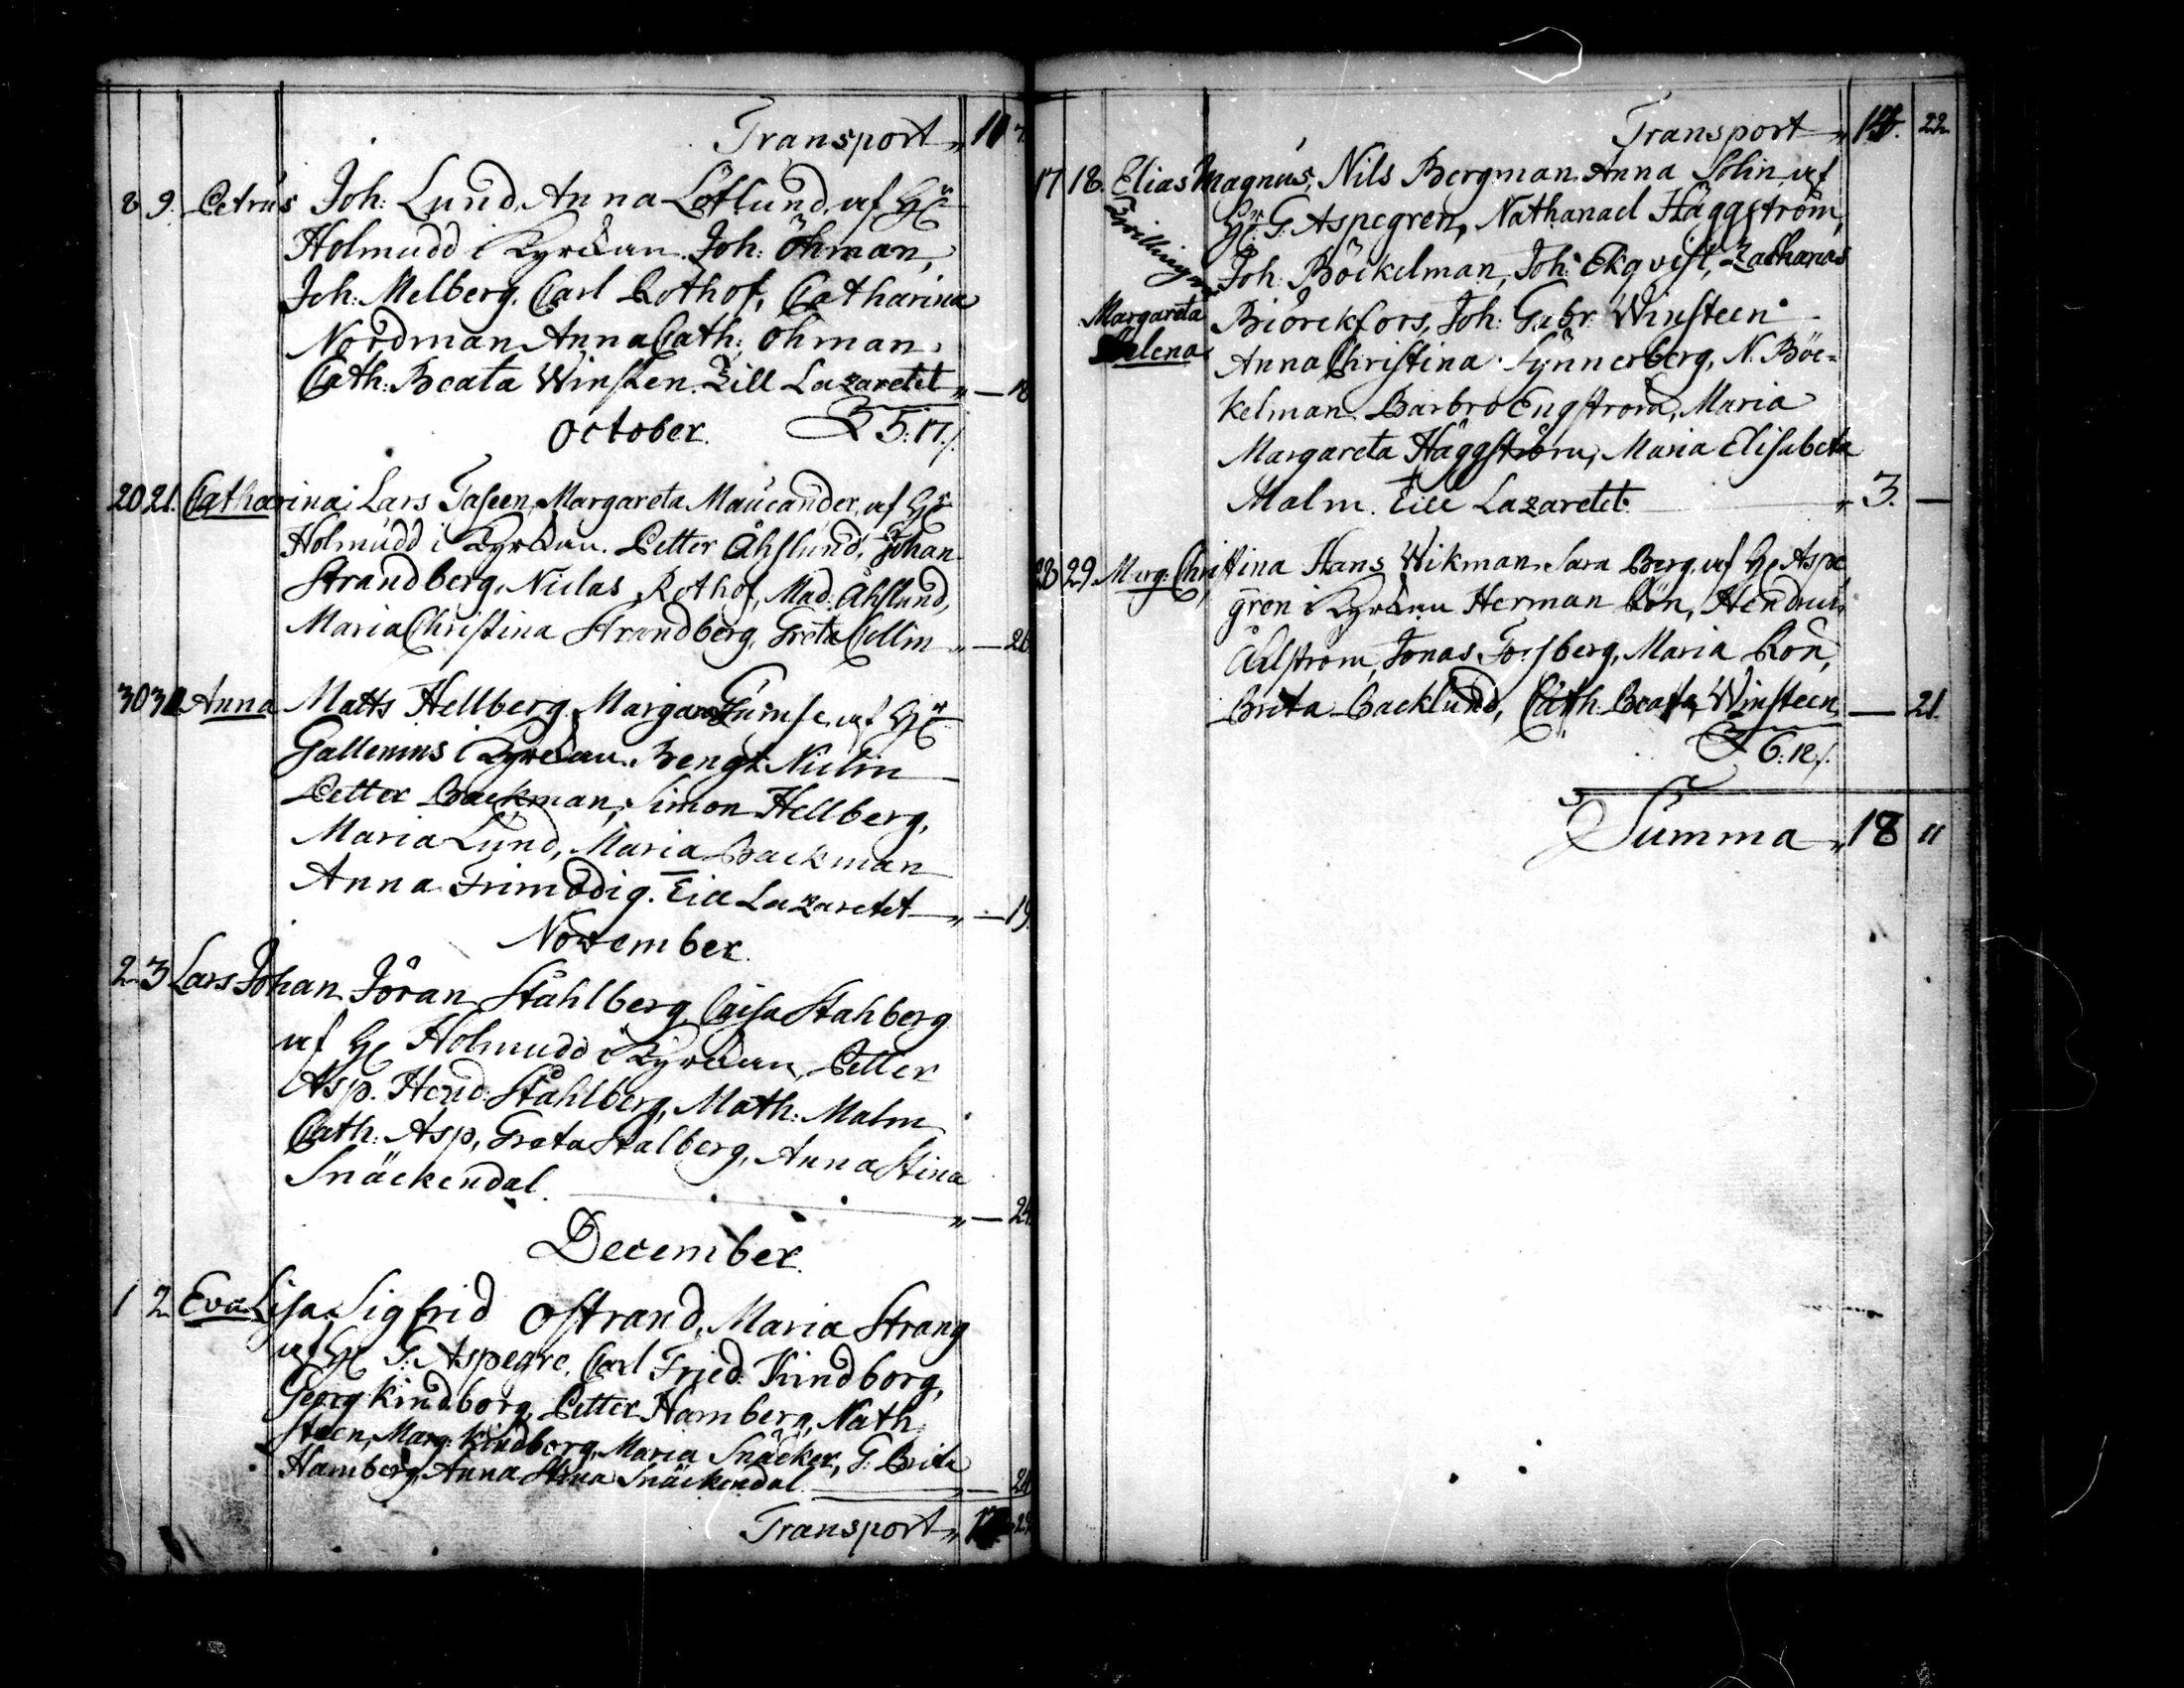 Transport „ 11 7.
8 9. Petrus Joh: Lund, Anna Löflund, af Hr
Holmudd i Kyrckan. Joh: Öhman,
Joh: Melberg, Carl Rothof, Catharina
Nordman Anna Cath: Öhman,
Cath: Beata Winsten. Till Lazarettet „ — 18
R 5:17./.
October.
20 21. Catharina. Lars Taseen, Margareta Maucander, af Hr
Holmudd i Kyrckan. Petter Åhslund, Johan
Strandberg, Niclas Rothof, Mad: Åhslund,
Maria Christina Strandberg, Greta Collin „ — 26
30 31 Anna Matts Hellberg, Margar: af Hr
Gallenius i Kyrckan. Bengt Niclin
Petter Backman, Simon Hellberg,
Maria Lund, Maria Backman
Anna Frimodig. Till Lazarettet „ — 19.
November.
2 3 Lars Johan Jöran Ståhlberg, Caisa Stahberg
af Hr Holmudd i Kyrckan, Petter
Asp. Hend: Ståhlberg, Math: Malm
Cath: Asp, Greta Stalberg, Anna Stina
Snäckendal. „ — 24.
December.
1 2 Eva Lisa. Sigfrid Ostrand, Maria Strang
af Hr G: Aspegre. Carl Fried: Kindborg,
Georg Kindborg, Petter Hamberg, Nath:
Steen, Marg: Kindborg, Maria Snäcker, G: Brita
Hamberg, Anna Stina Snäckendal. — 24
Transport „
Transport „ 22.
17 18. Elias Magnus, Nils Bergman Anna Solin, af
Hr: G: Aspegren, Nathanael Häggström,
Tvillingar
Joh: Böckelman, Joh: Ekqvist, Zacharias
Margareta Biörckfors, Joh: Gabr: Winsteen
Helena Anna Christina Synnerberg, N. Böc-
kelman Barbro Engström, Maria
Margareta Häggström, Maria Elisabeta
Malm. Till Lazarettet. „ 3. —
28 29. Marg: Christina Hans Wikman, Sara Berg, af Hr Aspe
gren i Kyrckan Herman Rön, Hendrich
Åhlström, Jonas Forsberg, Maria Rön,
Brita Backlund, Cath: Beata Winsteen — 21.
R 6:18/.
Summa „ 18 11